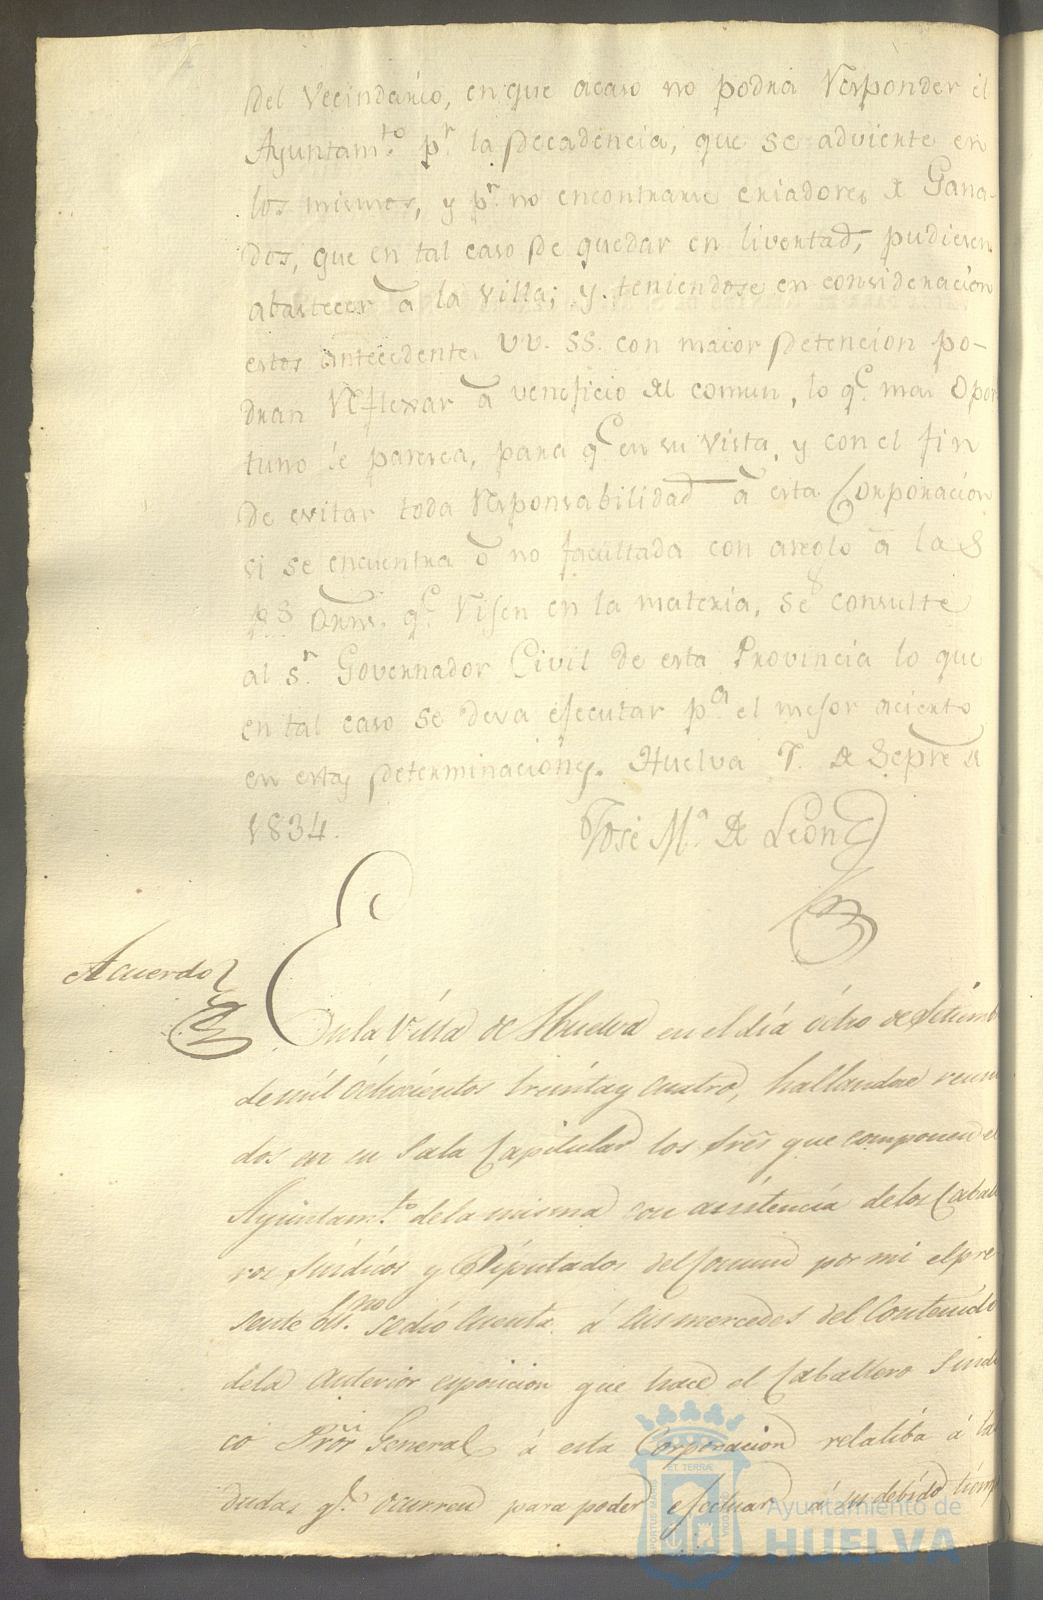 del Vecindario, en que acaso no podria Responder el
Ayuntam.to p.r la decadencia, que se advierte en
los mismos, y p.r no encontrarse criadores de Gana-
dos, que en tal caso de quedar en livertad, pudiesen
abastecer à la Villa; y teniendose en consideracion
estos antecedentes VV. SS. con maior detencion po-
dran Reflexar à veneficio del comun, lo q.e mas Opor
tuno le paresca, para q.e en su vista, y con el fin
de evitar toda Responsabilidad à esta Corporacion
si se encuentra ò no facultada con areglo à las
Orns. q.e Rijen en la materia, se consulte
al S.r Governador Civil de esta Provincia lo que
en tal caso se deva ejecutar p.a el mejor acierto
en estas determinaciones. Huelva 7. de Sepre de
1834.
José M.a de Leon
Acuerdo
En la Villa de Huelva en el día ocho de Setiemb
de mil ochocientos treinta y cuatro, hallandose reuni
dos en su Sala Capitular los Sres que componen el
Ayuntam.to de la misma con asistencia de los Caball
ros Sindicos y Diputados del Comun por mi el pre
sente Ss.no se dió cuenta á sus mercedes del contenido
de la anterior esposicion que hace el Caballero Sindi
co Pror General á esta Corporacion relatiba á las
dudas q.e ocurren para poder efectuar á su debido tiemp
Ayuntamiento de
HUELVA